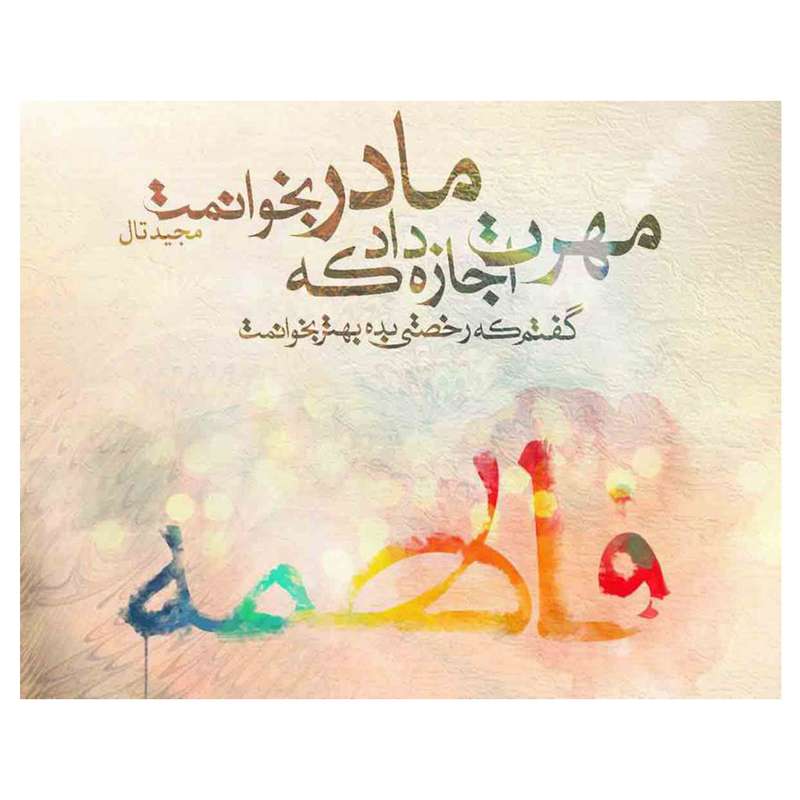 مهرت اجازه داد که مادر بخوانمت
گفتم که رخصتی بده بهتر بخوانمت
مجید تال
فاطمه